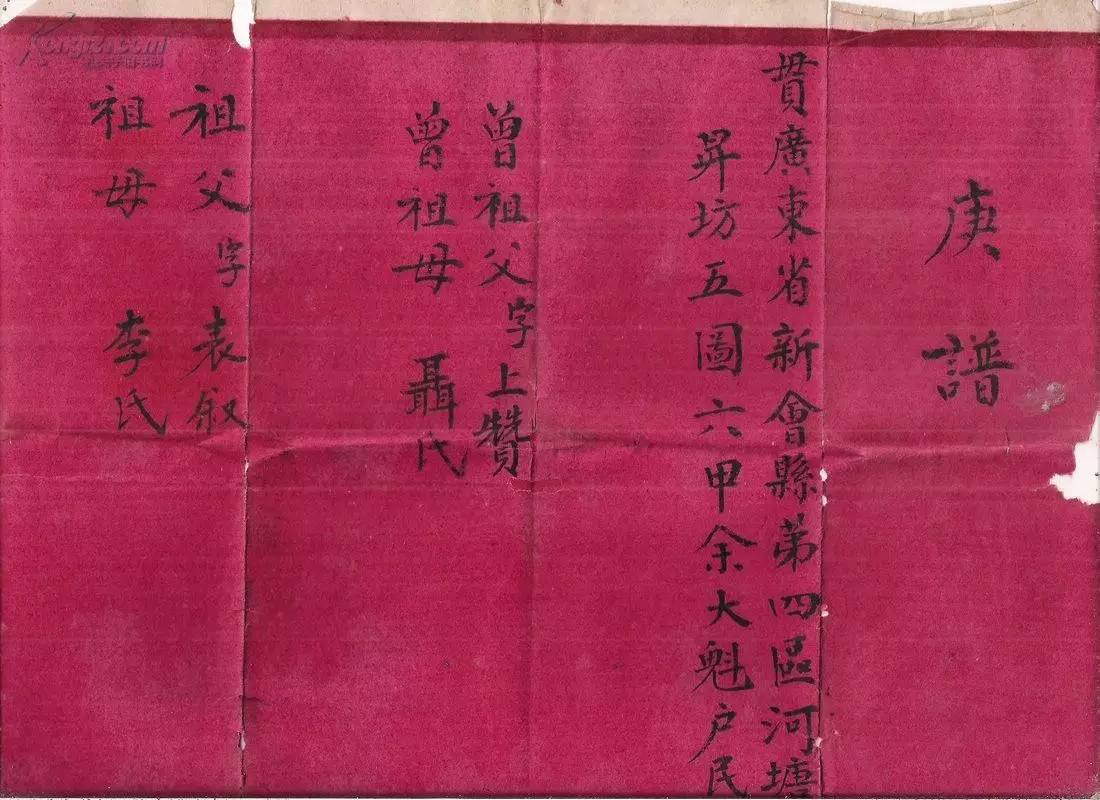 庚譜
貫廣東省新會縣第四區河塘
昇坊五圖六甲余大魁户民
曾祖父字上贊
曾祖母 聶氏
祖父字表叙
祖母 李氏